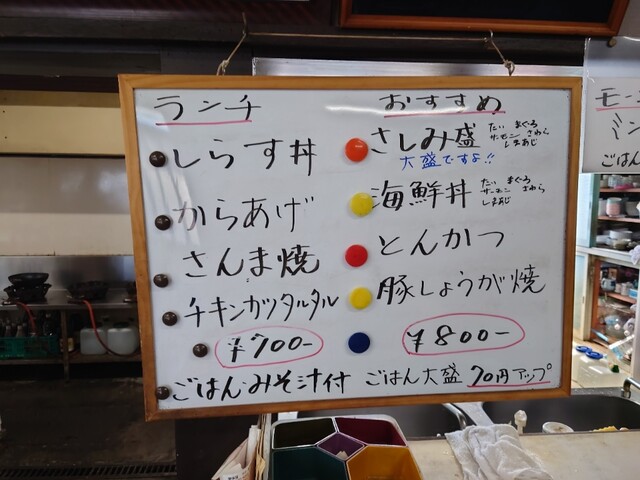 ランチ
しらす丼
からあげ
さんま焼
チキンカツタルタル
¥700-
おすすめ
さしみ盛
たい まぐろ
サーモン さわら
しまあじ
大盛ですよ!!
海鮮丼
たい まぐろ
サーモン さわら
しまあじ
とんかつ
豚しょうが焼
¥800-
ごはん・みそ汁付 ごはん大盛 70円アップ
モー
ごは